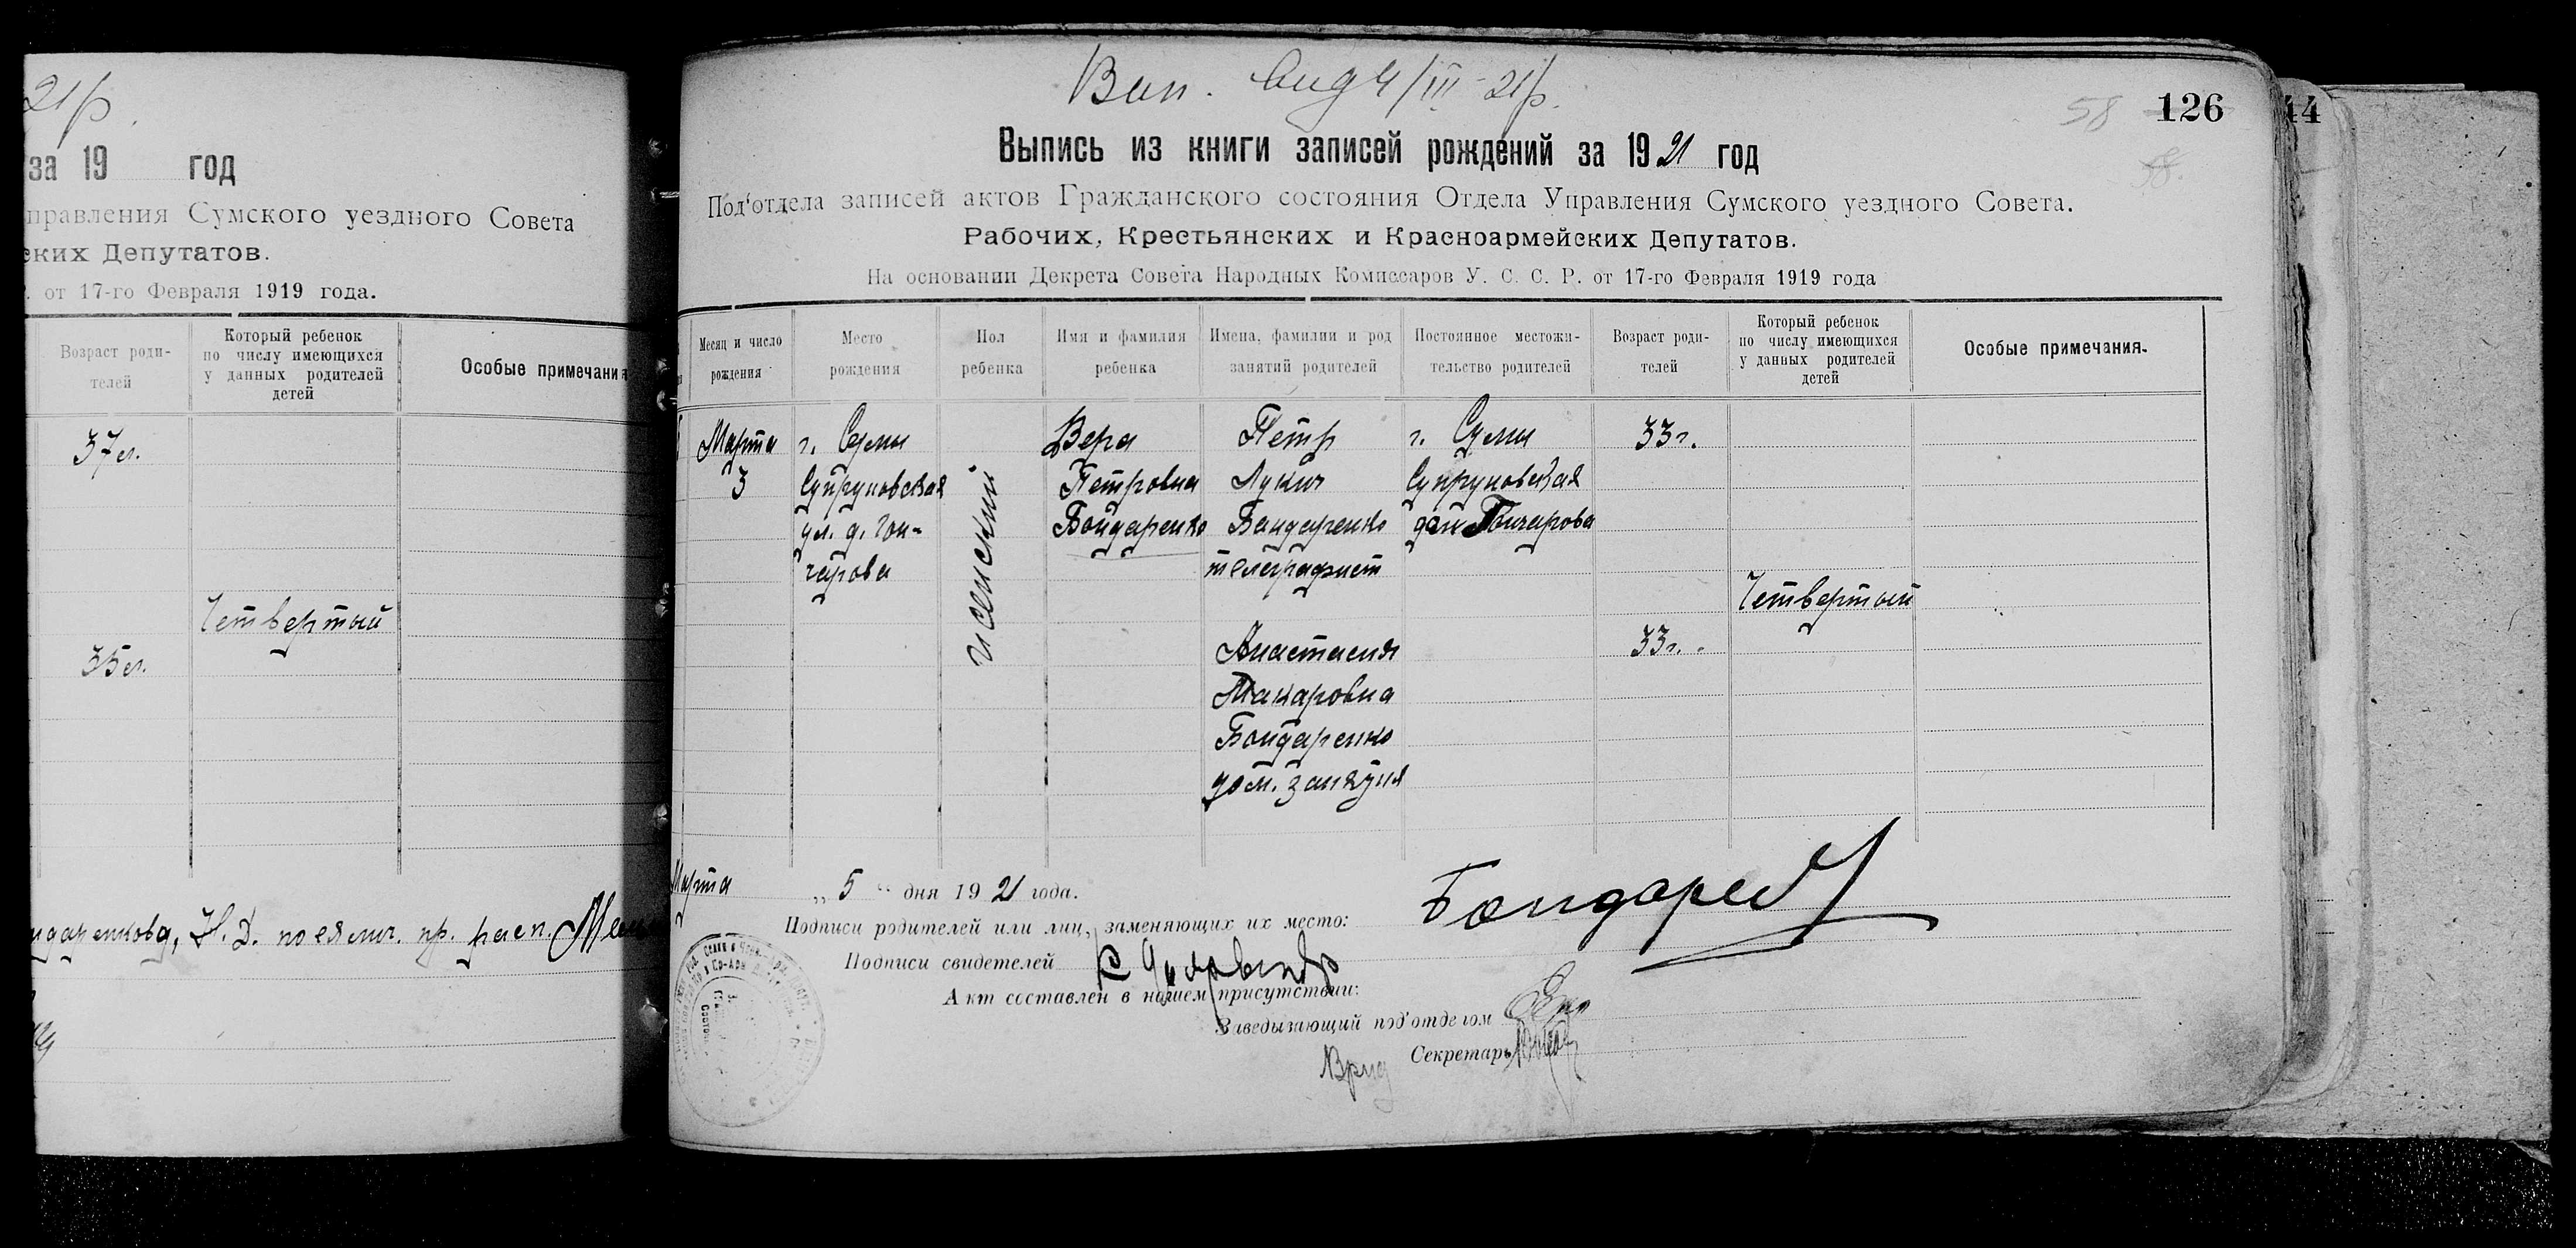 21р.
за 19 год
правления Сумского уездного Совета
ских Депутатов.
. от 17-го Февраля 1919 года.
Возраст роди-
телей
Который ребенок
по числу имеющихся
у данных родителей
детей
Особые примечани
37 л.
Четвертый
35 л.
ндаренкова, Н. Д. по ея лич. пр. расп.
Вип. вид 4/III-21р.
58 126
44
58.
Выпись из книги записей рождений за 1921 год
Под'отдела записей актов Гражданского состояния Отдела Управления Сумского уездного Совета.
Рабочих, Крестьянских и Красноармейских Депутатов.
На основании Декрета Совета Народных Комиссаров У. С. С. Р. от 17-го Февраля 1919 года
Месяц и число
рождения
Место
рождения
Пол
ребенка
Имя и фамилия
ребенка
Имена, фамилии и род
занятий родителей
Постоянное местожи-
тельство родителей
Возраст роди-
телей
Который ребенок
по числу имеющихся
у данных родителей
детей
Особые примечания.
Марта
3
г. Сумы
Супруновская
ул. д. Гон-
чарова
женский
Вера
Петровна
Бондаренко
Петр
Лукич
Бондаренко
телеграфист
Анастасия
Макаровна
Бондаренко
дом. занятия
г. Сумы
Супруновская
дом Гончарова
33 г.
33 г.
Четвертый
Марта „ 5 “ дня 1921 года.
Подписи родителей или лиц, заменяющих их место:
Подписи свидетелей
Акт составлен в нашем присутствии:
Заведывающий под'отделом
Врид Секретарь